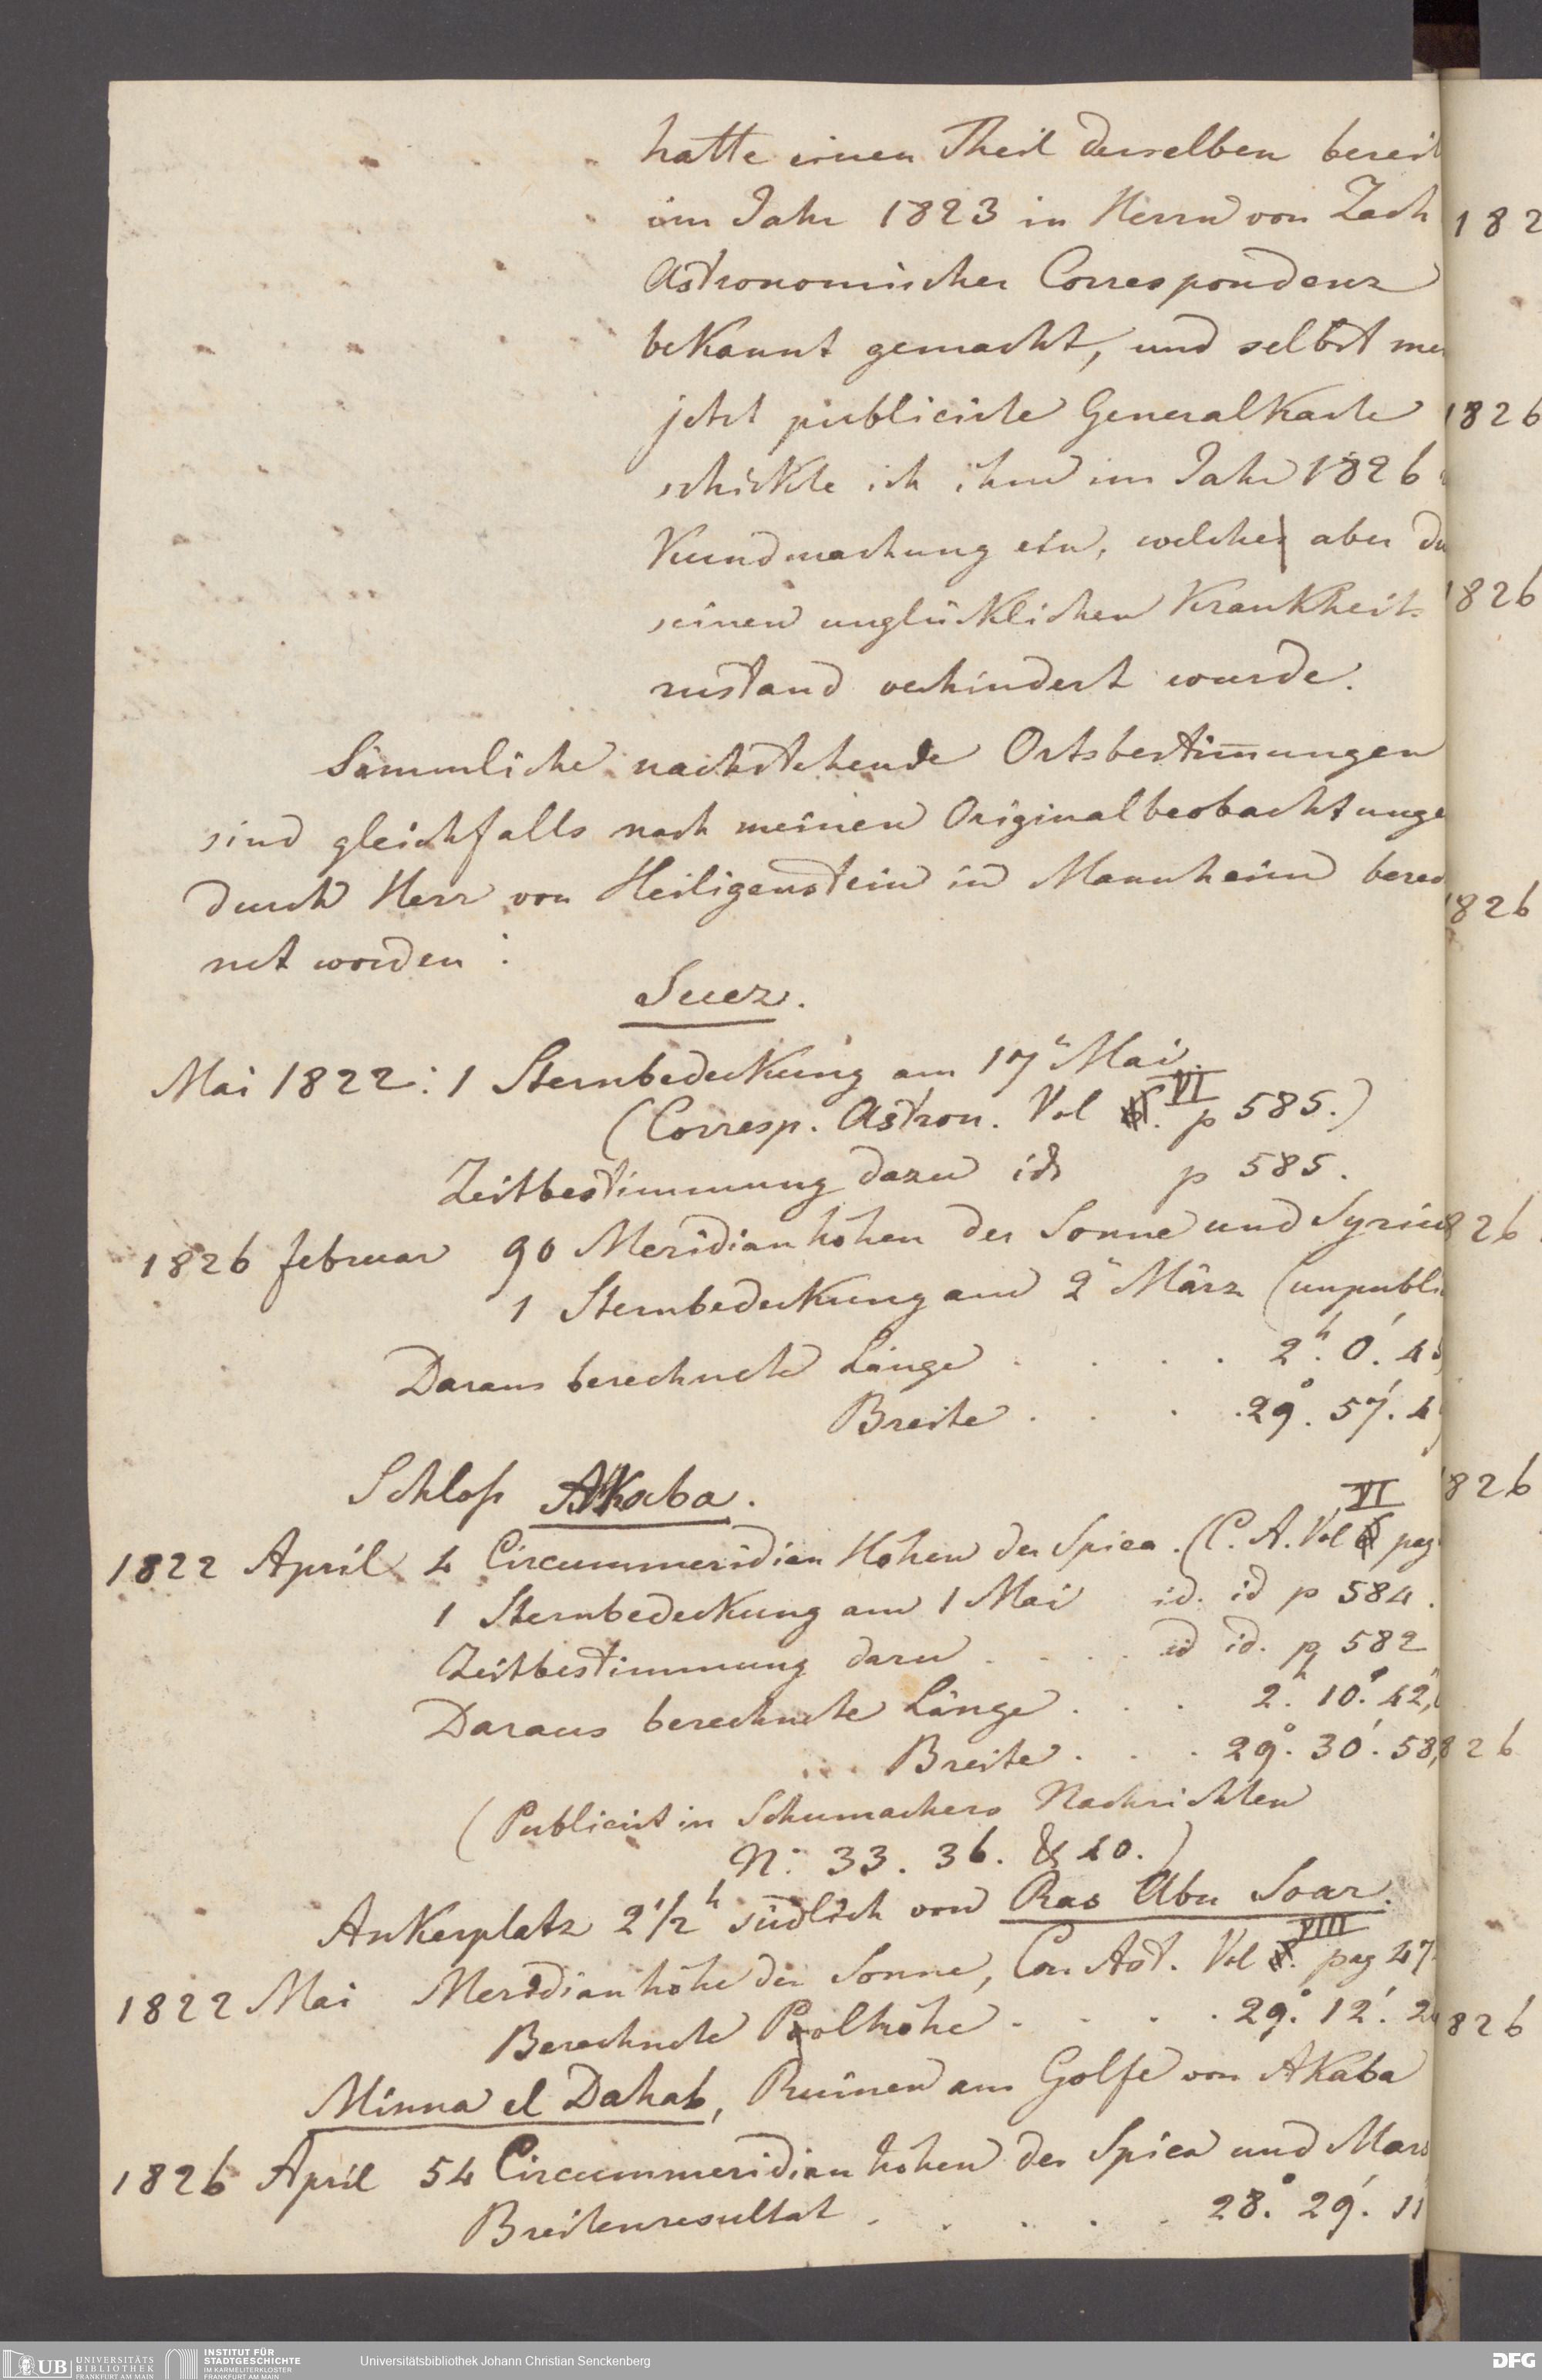 hatte einen Theil derselben bereit
im Jahr 1823 in Herrn von Zach
Astronomischer Correspondenz
bekannt gemacht, und selbst me
jetzt publicirte Generalkarte
schickte ich ihm im Jahr 1826
Kundmachung ein, welche aber du
seinen unglücklichen Krankheits
zustand verhindert wurde.
Sämmliche nachstehende Ortsbestim̅ungen
sind gleichfalls nach meinen Originalbeobachtunge
durch Herr von Heiligenstein in Mannheim berec
net worden:
Suez.
Mai 1822: 1 Sternbedeckung am 17n Mai.
(Corresp. Astron. Vol VI. p 585.)
Zeitbestimmung dazu id p 585.
1826 februar 90 Meridianhöhen der Sonne und Syrius
1 Sternbedeckung am 2n März (unpubli
Daraus berechnete Länge . . . . 2h. 0'. 4
Breite . . . . 29°. 57'. 4
Schloß Akaba.
1822 April 4 Circummeridian Höhen der Spica. (C. A. Vol VI pag
1 Sternbedeckung am 1 Mai id. id p 584.
Zeitbestimmung dazu . . . . id id. pg 582
Daraus berechnete Länge . . . 2h. 10'. 42,
Breite . . . 29°. 30'. 58,
(Publicirt in Schumachers Nachrichten
No 33. 36. & 40.)
Ankerplatz 2 1/2 h südlich von Ras Abu Soar.
1822 Mai Meridianhöhe der Sonne, Cor. Ast. Vol VIII. pag 47
Berechnete Polhöhe . . . . 29°. 12'. 2
Minna el Dahab, Ruinen am Golfe von Akaba
1826 April 54 Circummeridian höhen der Spica und Mars
Breitenresultat . . . . . 28°. 29'. 11
182
1826
1826
1826
826
826
826
826
UB UNIVERSITÄTS
BIBLIOTHEK
FRANKFURT AM MAIN
INSTITUT FÜR
STADTGESCHICHTE
IM KARMELITERKLOSTER
FRANKFURT AM MAIN
Universitätsbibliothek Johann Christian Senckenberg
DFG